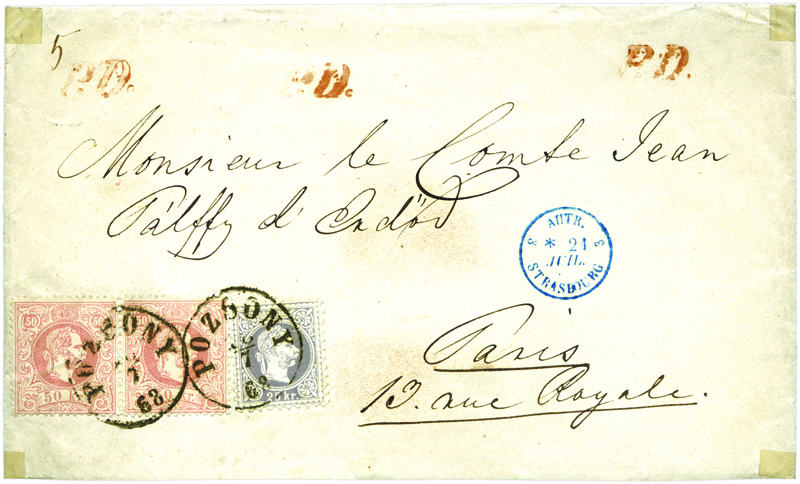 5
P.D. P.D. P.D.
Monsieur le Comte Jean
Pálffy d'Erdöd
AUTR.
3 * 21 3
JUIL.
STRASBOURG
50 50
50 K
POZSONY
7
68
POZSONY
7
68
25 kr.
Paris
13. rue Royale.